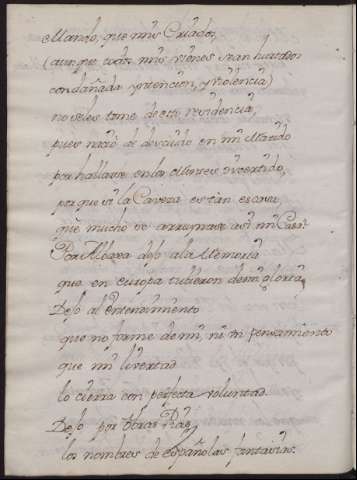 Mando, que mis Criados,
(aunque todos mis vienes sean hurtados
con dañada yntencion, y violencia)
no seles tome de esto residencia,
pues nació de descuido en mi Marido
por hallarse en los Montes divertido,
porque si la Caveza es tan escasa,
que mucho se arruynase assi mi Casa?
Por Albazea dejo a la Memoria
que en europa tubieron de mi gloria,
Dejo al entendimiento
que no forme de mi, ni un pensamiento
que mi livertad
lo cierra con perfecta voluntad.
Dejo por obras Pias
los nombres de españolas fantasias.